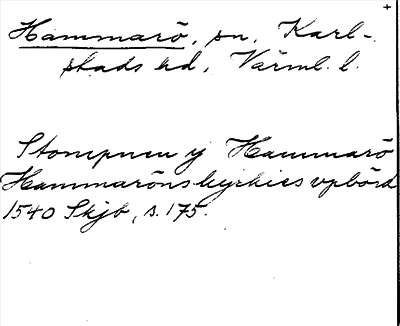 Hammarö, sn, Karl-
stads hd, Värml. l.
Stompnen y Hammarö
Hammaröns kyrkies vpbörd
1540 Skjb, s. 175.